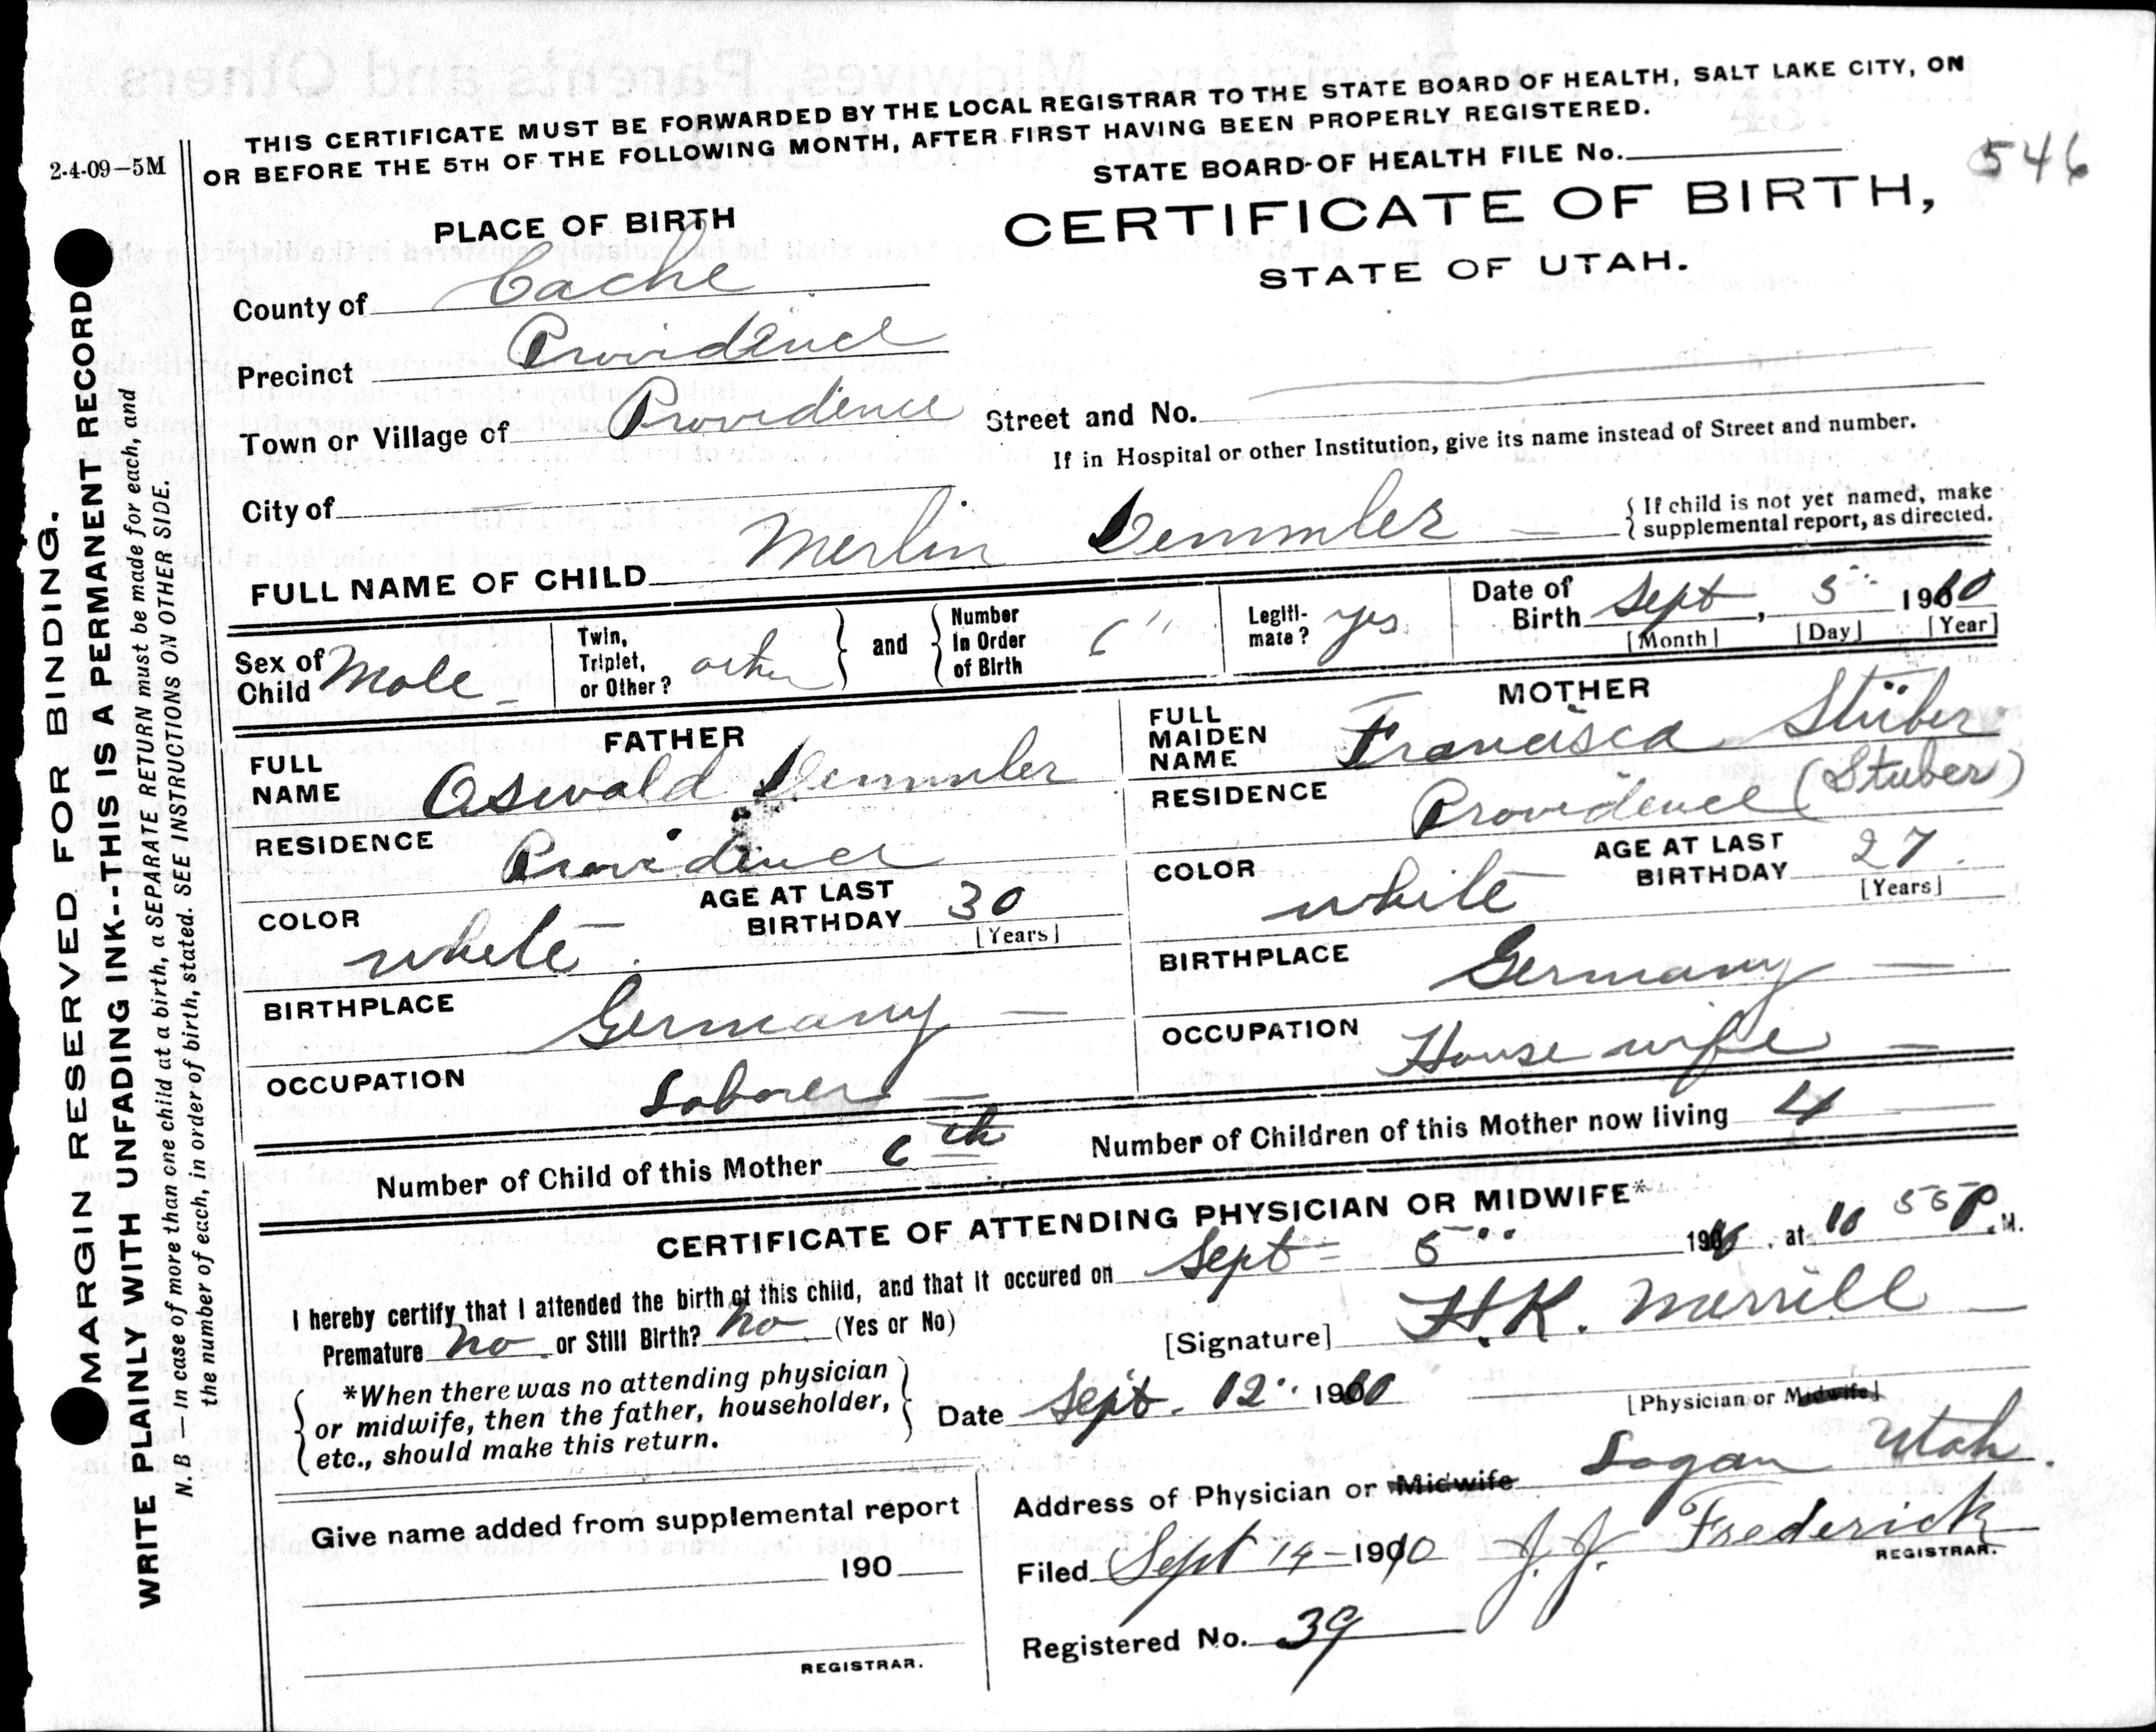 THIS CERTIFICATE MUST BE FORWARDED BY THE LOCAL REGISTRAR TO THE STATE BOARD OF HEALTH, SALT LAKE CITY, ON
OR BEFORE THE 5TH OF THE FOLLOWING MONTH, AFTER FIRST HAVING BEEN PROPERLY REGISTERED.
2-4-09-5M
STATE BOARD OF HEALTH FILE No. 546
PLACE OF BIRTH
CERTIFICATE OF BIRTH,
STATE OF UTAH.
County of Cache
Precinct Providence
Town or Village of Providence Street and No.
If in Hospital or other Institution, give its name instead of Street and number.
City of
If child is not yet named, make
supplemental report, as directed.
FULL NAME OF CHILD Merlin Demmler
Sex of Child Male Twin, Triplet, or Other? other and Number In Order of Birth 6" Legiti-mate? yes Date of Birth Sept, 5 1910
[Month] [Day] [Year]
FATHER
FULL NAME Oswald Demmler
RESIDENCE Providence
COLOR white AGE AT LAST BIRTHDAY 30
[Years]
BIRTHPLACE Germany
OCCUPATION Laborer
MOTHER
FULL MAIDEN NAME Francisca Stüber
RESIDENCE Providence (Stuber)
COLOR white AGE AT LAST BIRTHDAY 27
[Years]
BIRTHPLACE Germany
OCCUPATION House wife
Number of Child of this Mother 6th Number of Children of this Mother now living 4
CERTIFICATE OF ATTENDING PHYSICIAN OR MIDWIFE*
I hereby certify that I attended the birth of this child, and that it occured on Sept 5 19 , at 10 55 P.M.
Premature no or Still Birth? no (Yes or No)
[Signature] H.K. Merrill
[Physician or Midwife]
*When there was no attending physician
or midwife, then the father, householder,
etc., should make this return.
Date Sept. 12 1910
Address of Physician or Midwife Logan Utah.
Give name added from supplemental report
190
REGISTRAR.
Filed Sept 14-1910 J.J. Frederick
REGISTRAR.
Registered No. 39
MARGIN RESERVED FOR BINDING.
WRITE PLAINLY WITH UNFADING INK--THIS IS A PERMANENT RECORD
N. B — In case of more than one child at a birth, a SEPARATE RETURN must be made for each, and
the number of each, in order of birth, stated. SEE INSTRUCTIONS ON OTHER SIDE.